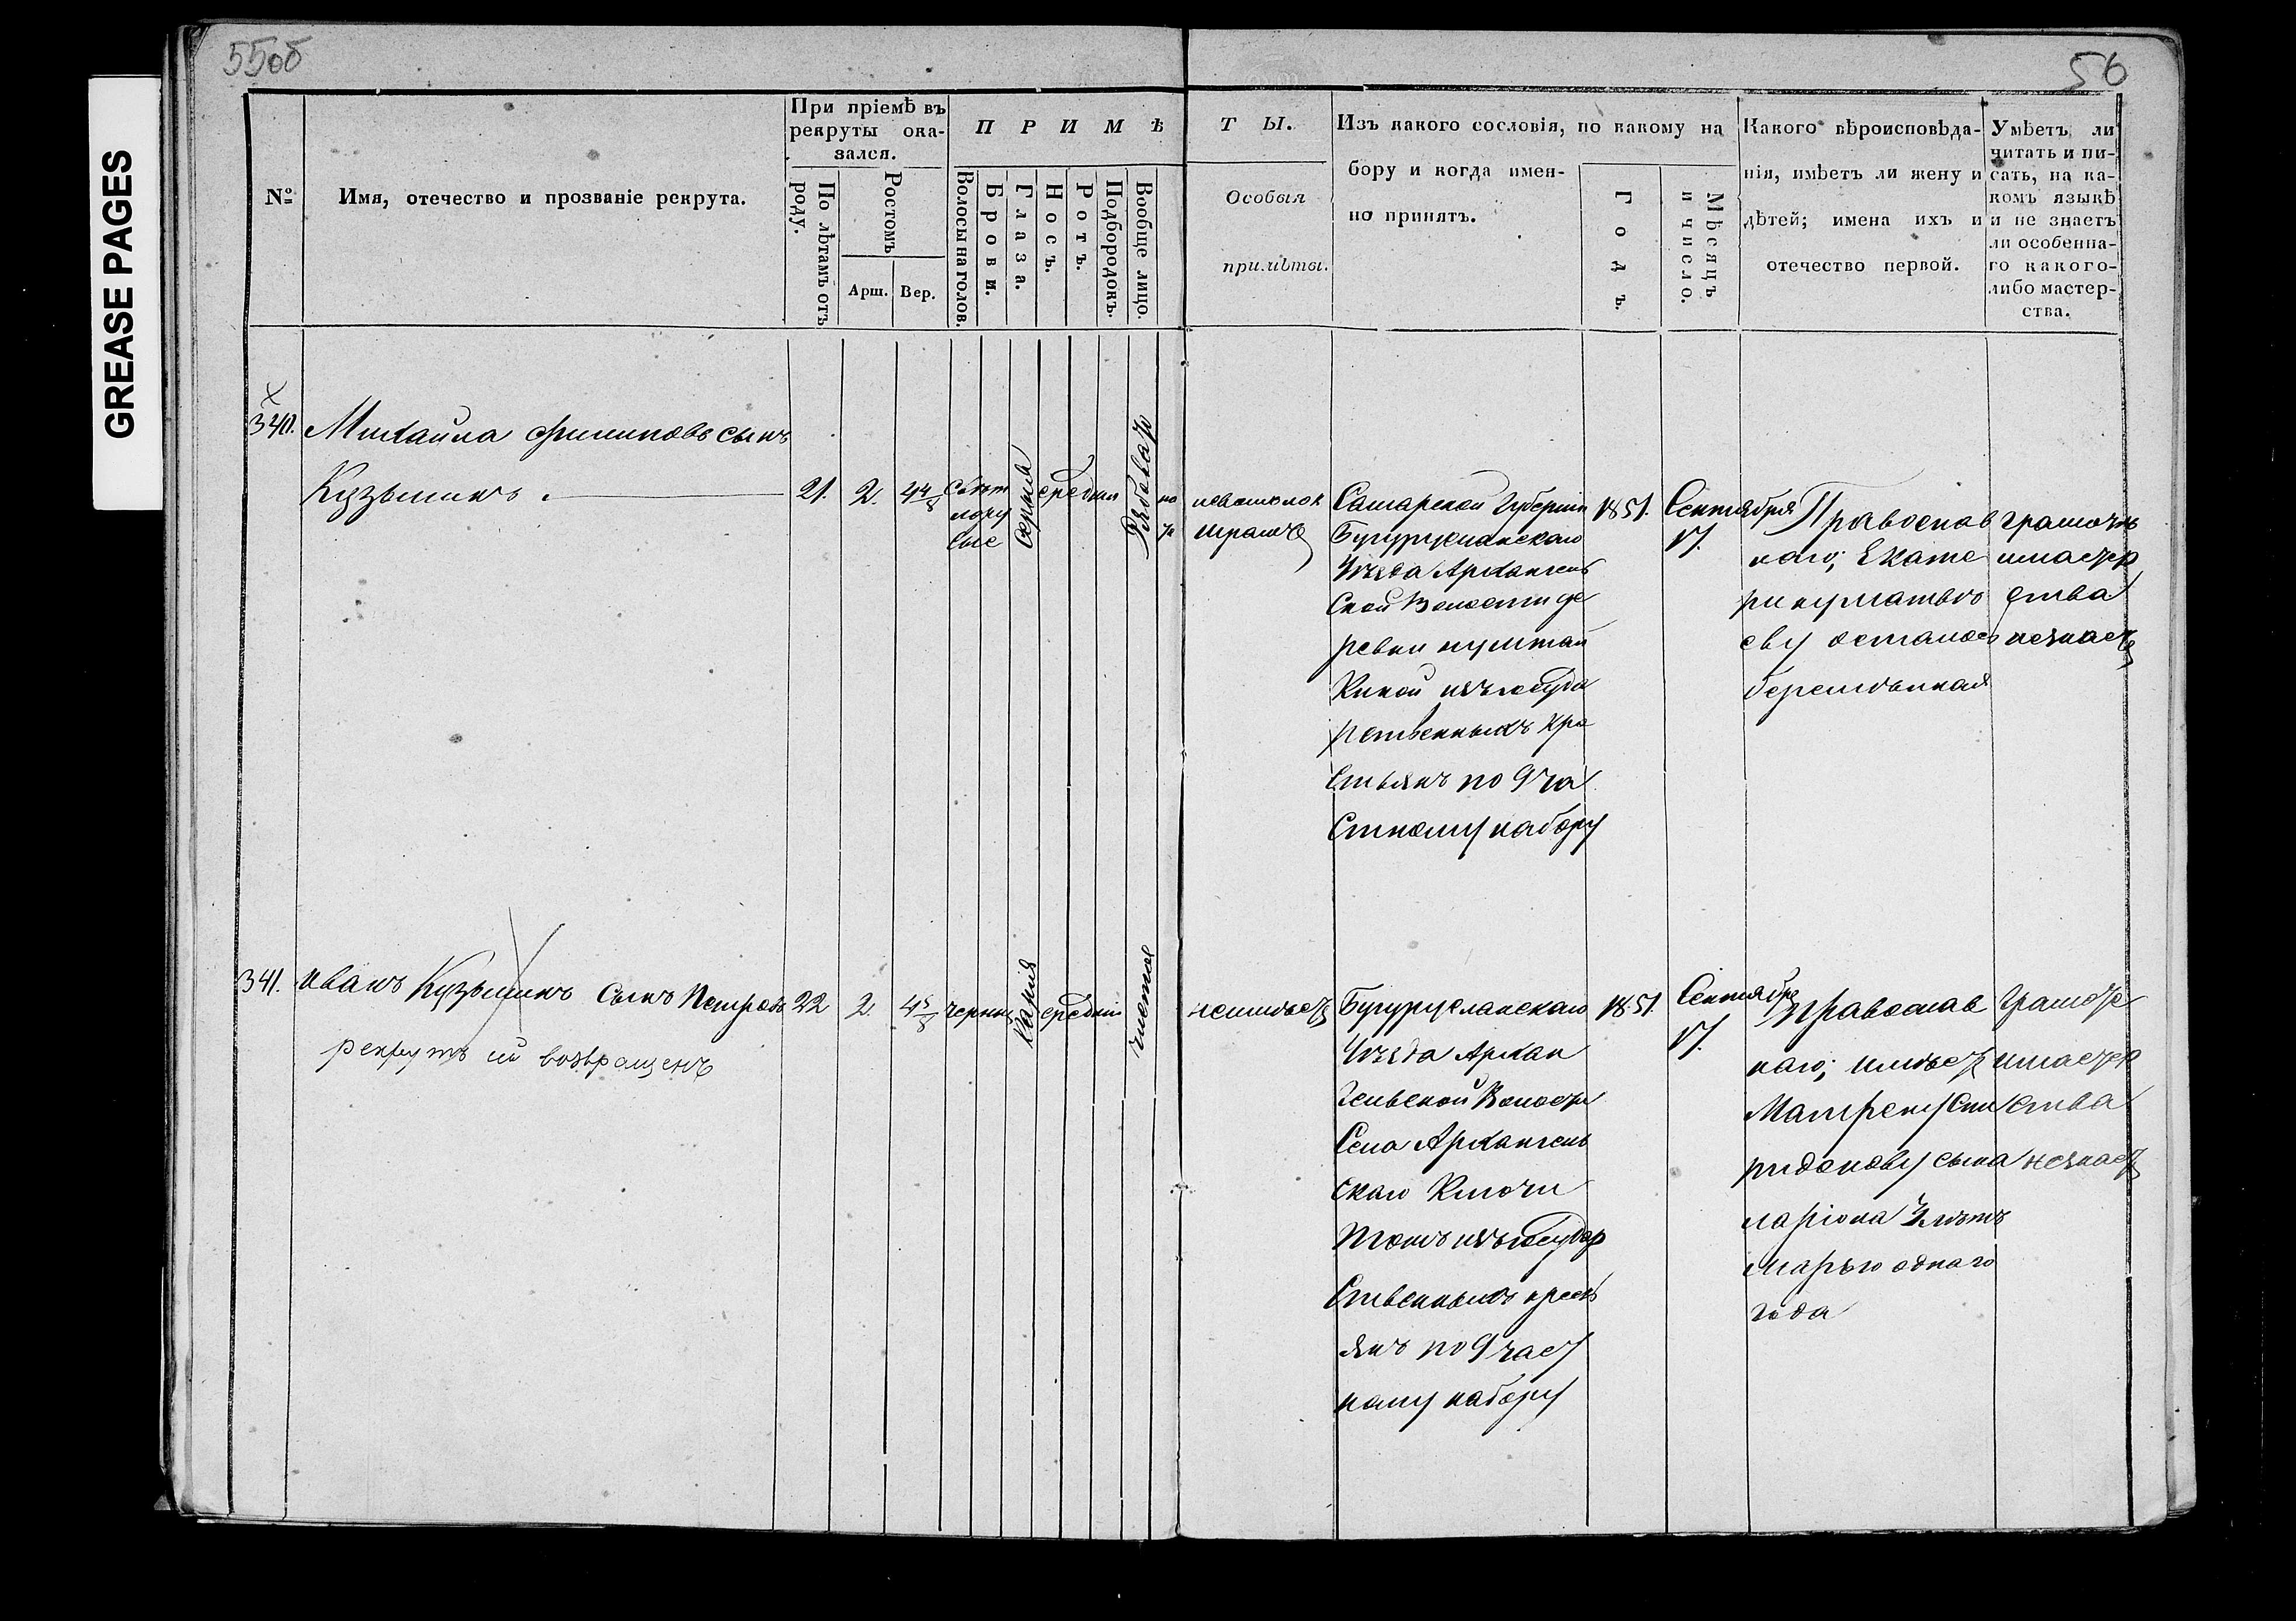 GREASE PAGES
55об
56
№
Имя, отечество и прозваніе рекрута.
При пріемѣ въ
рекруты ока-
зался.
По лѣтамъ отъ
роду.
Ростомъ
Арш.
Вер.
ПРИМѢ
Волосы на голов.
Брови.
Глаза.
Носъ.
Ротъ.
Подбородокъ.
Вообще лицо.
ТЫ.
Особыя
примѣты.
Изъ какого сословія, по какому на
бору и когда имен-
но принятъ.
Годъ.
Мѣсяцъ
и число.
Какого вѣроисповѣда-
нія, имѣетъ ли жену и
дѣтей; имена ихъ и
отечество первой.
Умѣетъ ли
читать и пи-
сать, на ка-
комъ языкѣ
и не знаетъ
ли особенна-
го какого-
либо мастер-
ства.
340.
Михайла Филиповъ сынъ
Кузьминъ.
21.
2.
4 4/8
Свѣт
лору
сые
серыя
средния
Самарской Губерніи
Бугурусланскаго
Уѣзда Архангель
Ской Волости де
ревни
Киной изъ государ
рственныхъ кре
стьянъ по 9 ча
Стному набору
1851.
Сентября
17.
Православ
наго; Екате
рину Матве
еву осталась
беременная
грамоты
и мастер
ства
незнаетъ
341.
Иванъ Кузьминъ Сынъ Петровъ
рекрутъ сій возвращенъ
22
2.
4 5/8
черныя
Карія
средній
чистое
неимѣетъ
Бугурусланскаго
Уѣзда Архан
гельской Волости
Села Архангель
скаго Ключи
тожъ изъ государ
Ственныхъ крест
янъ по 9 част
ному набору
1851.
Сентября
17.
Православ
наго; имѣетъ
Матрену Спи
ридонову сына
лариона 3 лѣтъ
марью однаго
года
Грамоте
и мастер
ства
незнаетъ